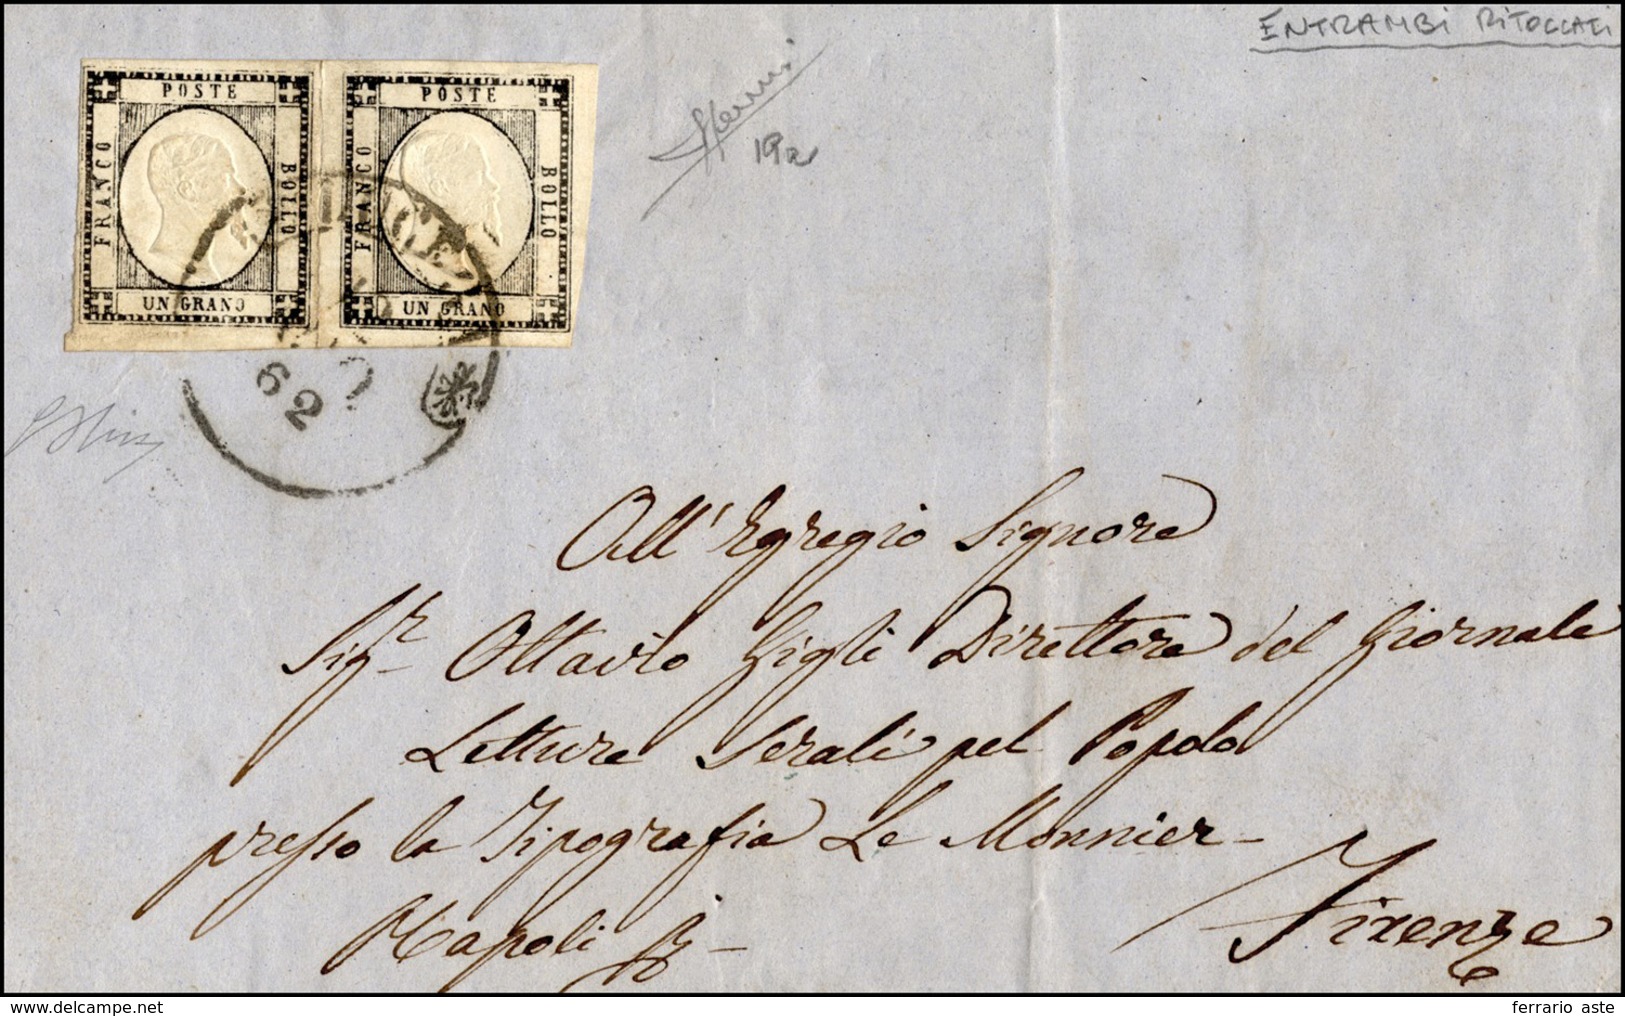 ENTRAMBI RITOCCATI
POSTE
FRANCO
BOLLO
UN GRANO
POSTE
FRANCO
BOLLO
UN GRANO
19a
62
All'Egregio Signore
Sigr Ottavio Gigli Direttore del Giornale
Letture Serali pel Popolo
presso la Tipografia Le Monnier
Napoli
Firenze
www.delcampe.net
ferrario aste